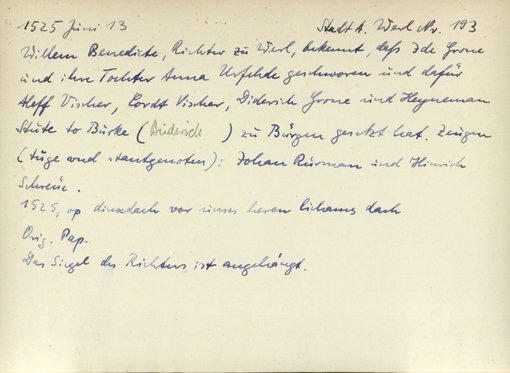 1525 Juni 13 Stadt A. Werl Nr. 193
Wilhem Benedicte, Richter zu Werl, bekennt, daß Ide Grone
und ihre Tochter Anna Urfehde geschworen und dafür
Aleff Vischer, Cordt Vischer, Diderich Grone und Heyneman
Stute to Burke (Büderich) zu Bürgen gesetzt hat. Zeugen
(tüge und stantgenoten): Johan Rurman und Hinrich
1525, op dinxsdach vor unses heren lichams dach
Orig. Pap.
Das Siegel des Richters ist angehängt.